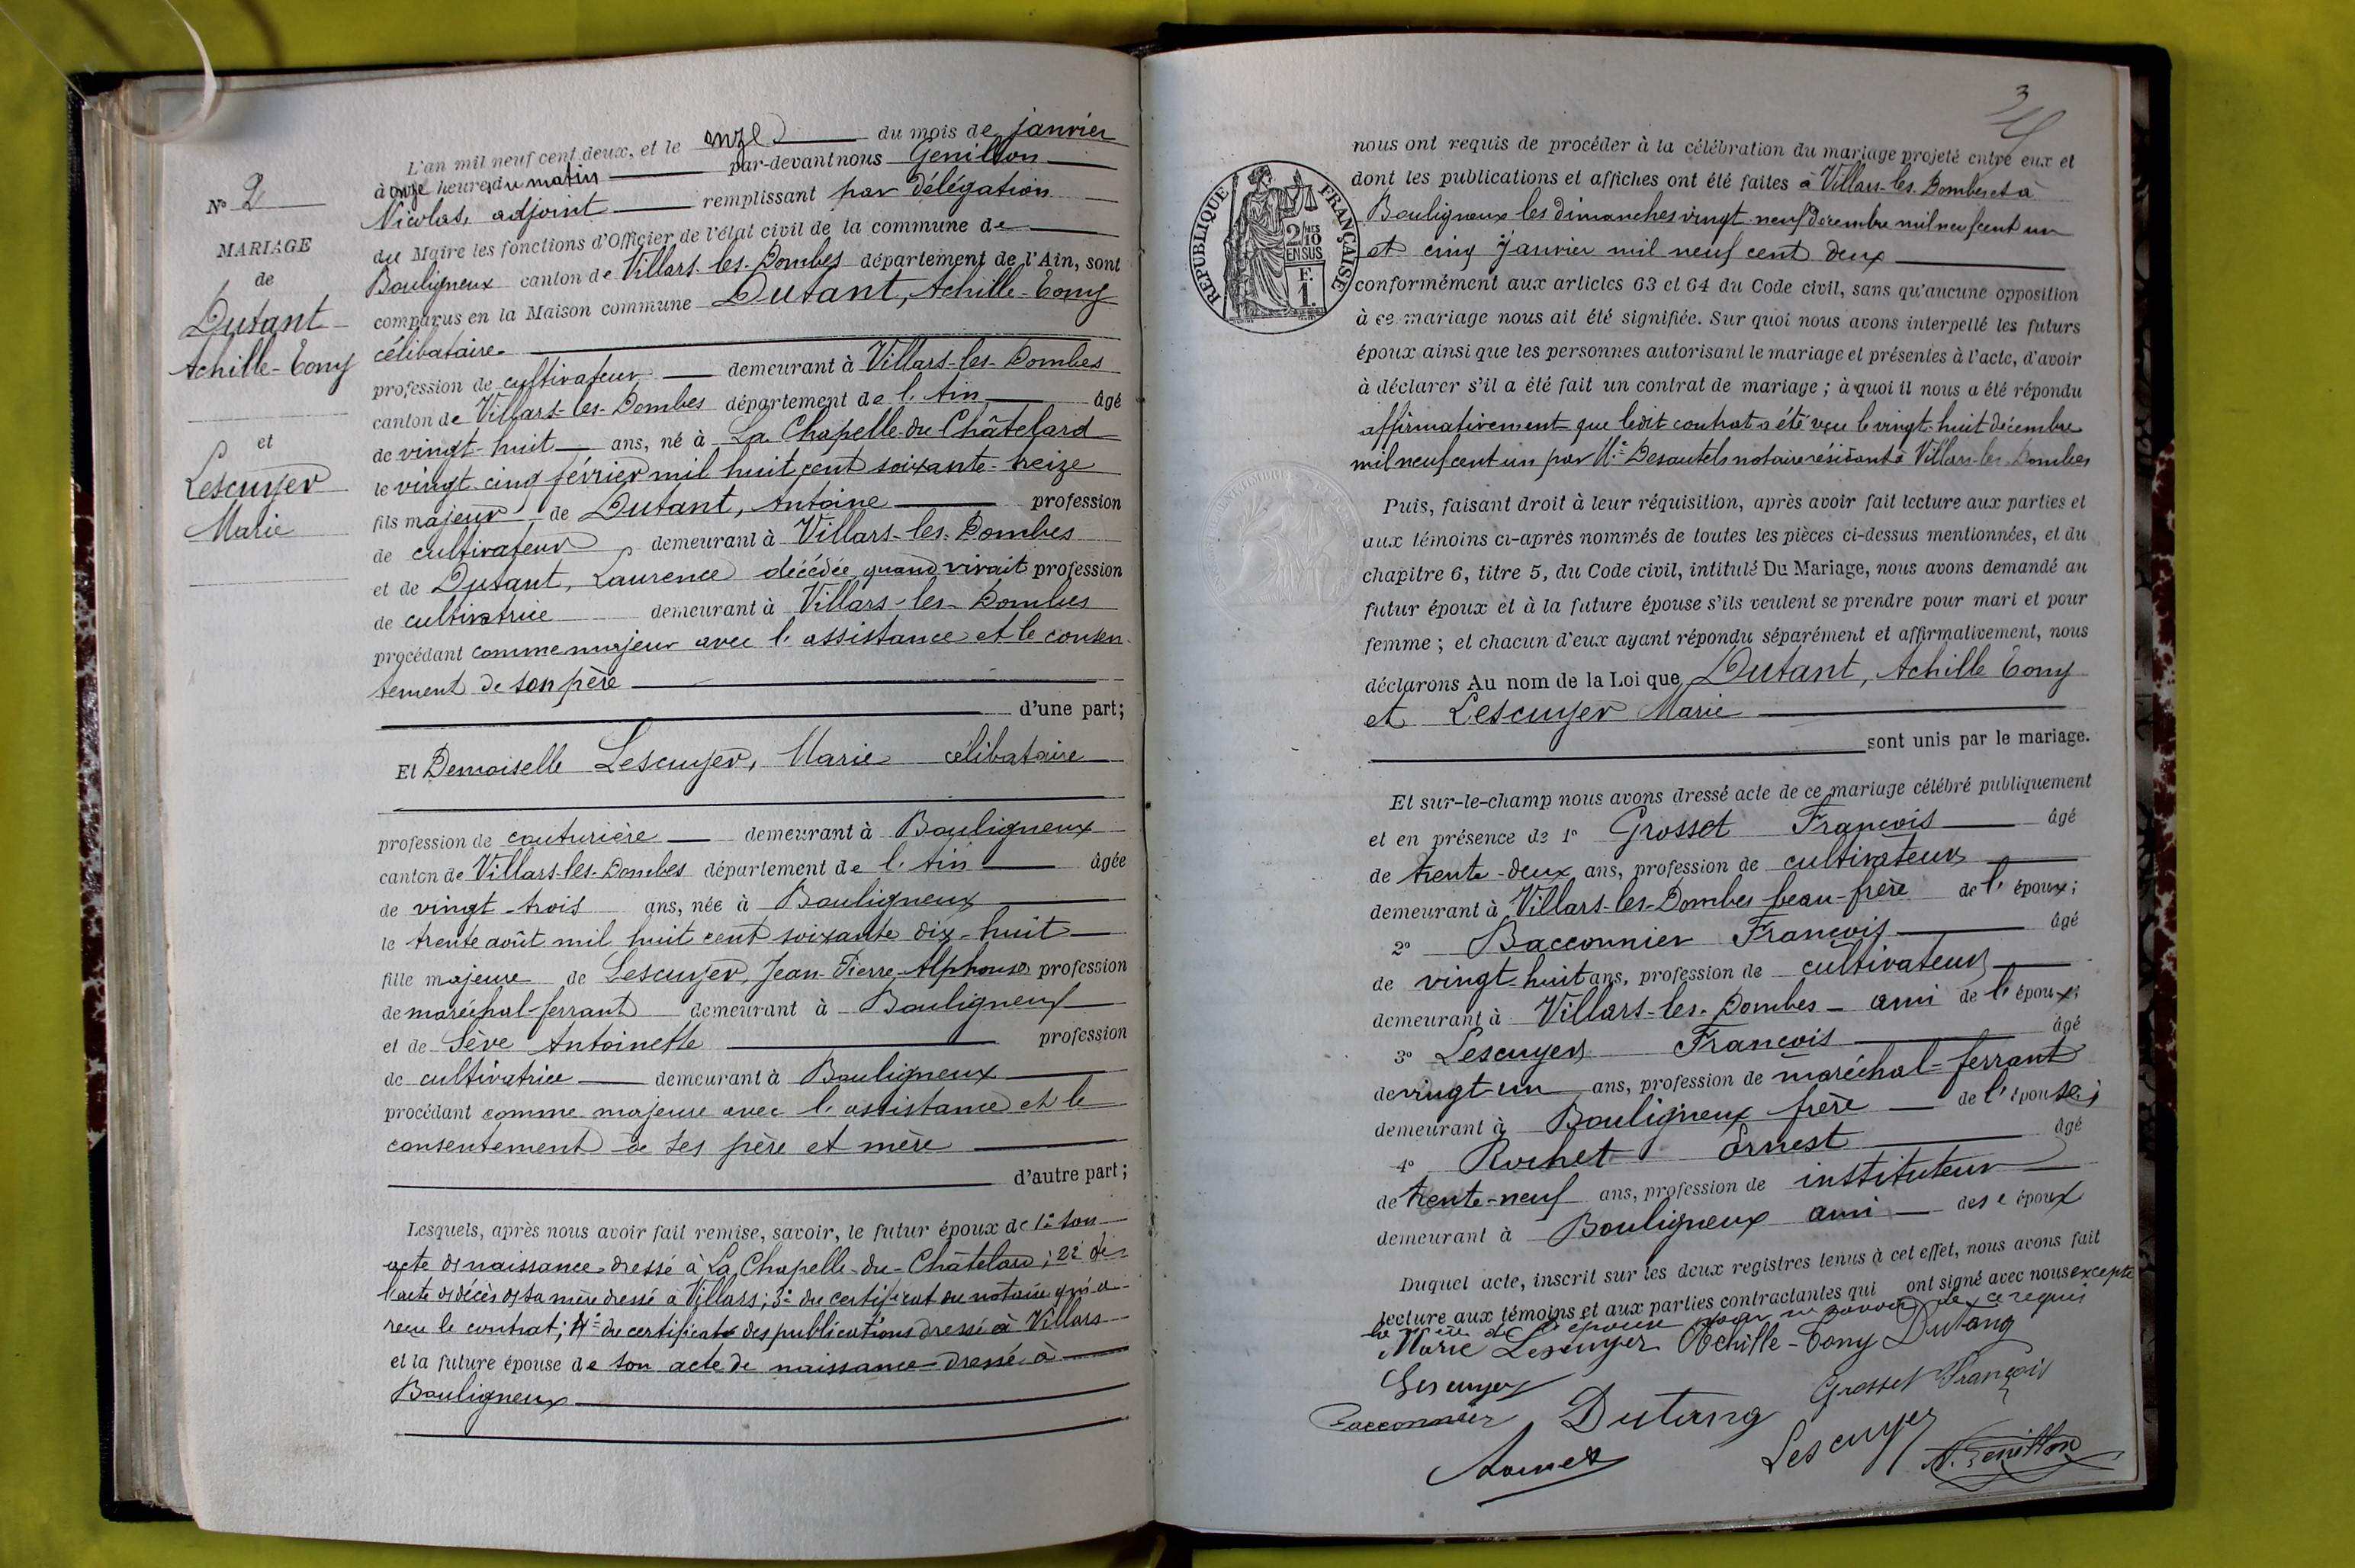 N° 2
MARIAGE
de
Dutant
Achille-Tony
et
Lescuyer
Marie
L'an mil neuf cent deux, et le onze du mois de janvier
à onze heures du matin par-devant nous Genillon
Nicolas, adjoint remplissant par délégation
du Maire les fonctions d'Officier de l'état civil de la commune de
Bouligneux canton de Villars-les-Dombes département de l'Ain, sont
comparus en la Maison commune Dutant, Achille-Tony
célibataire
profession de cultivateur demeurant à Villars-les-Dombes
canton de Villars-les-Dombes département de l'Ain âgé
de vingt-huit ans, né à La Chapelle-du-Châtelard
le vingt-cinq février mil huit cent soixante-treize
fils majeur de Dutant, Antoine profession
de cultivateur demeurant à Villars-les-Dombes
et de Dutant, Laurence décédée, quand vivait profession
de cultivatrice demeurant à Villars-les-Dombes
procédant comme majeur avec l'assistance et le consen
tement de son père
d'une part;
Et Demoiselle Lescuyer, Marie célibataire
profession de couturière demeurant à Bouligneux
canton de Villars-les-Dombes département de l'Ain âgée
de vingt-trois ans, née à Bouligneux
le trente août mil huit cent soixante dix-huit
fille majeure de Lescuyer, Jean-Pierre-Alphonse profession
de maréchal-ferrant demeurant à Bouligneux
et de Sève Antoinette profession
de cultivatrice demeurant à Bouligneux
procédant comme majeure avec l'assistance et le
consentement de ses père et mère
d'autre part;
Lesquels, après nous avoir fait remise, savoir, le futur époux de 1° son
acte de naissance dressé à La Chapelle-du-Châtelard; 2° de
l'acte de décès de sa mère dressé à Villars; 3° du certificat du notaire qui a
reçu le contrat; 4° du certificat des publications dressé à Villars
et la future épouse de son acte de naissance dressé à
Bouligneux
3
RÉPUBLIQUE FRANÇAISE
2/10 MES
EN SUS
F.
1.
nous ont requis de procéder à la célébration du mariage projeté entre eux et
dont les publications et affiches ont été faites à Villars-les-Dombes et à
Bouligneux les dimanches vingt-neuf décembre mil neuf cent un
et cinq janvier mil neuf cent deux
conformément aux articles 63 et 64 du Code civil, sans qu'aucune opposition
à ce mariage nous ait été signifiée. Sur quoi nous avons interpellé les futurs
époux ainsi que les personnes autorisant le mariage et présentes à l'acte, d'avoir
à déclarer s'il a été fait un contrat de mariage; à quoi il nous a été répondu
affirmativement que ledit contrat a été reçu le vingt-huit décembre
mil neuf cent un par Me Desautels notaire résidant à Villars-les-Dombes
Puis, faisant droit à leur réquisition, après avoir fait lecture aux parties et
aux témoins ci-après nommés de toutes les pièces ci-dessus mentionnées, et du
chapitre 6, titre 5, du Code civil, intitulé Du Mariage, nous avons demandé au
futur époux et à la future épouse s'ils veulent se prendre pour mari et pour
femme; et chacun d'eux ayant répondu séparément et affirmativement, nous
déclarons Au nom de la Loi que Dutant, Achille Tony
et Lescuyer Marie
sont unis par le mariage.
Et sur-le-champ nous avons dressé acte de ce mariage célébré publiquement
et en présence de 1° Grosset François âgé
de trente-deux ans, profession de cultivateur
demeurant à Villars-les-Dombes beau-frère de l'époux;
2° Bacconnier François âgé
de vingt-huit ans, profession de cultivateur
demeurant à Villars-les-Dombes ami de l'époux;
3° Lescuyer François âgé
de vingt-un ans, profession de maréchal-ferrant
demeurant à Bouligneux frère de l'épouse;
4° Rochet Ernest âgé
de trente-neuf ans, profession de instituteur
demeurant à Bouligneux ami des époux
Duquel acte, inscrit sur les deux registres tenus à cet effet, nous avons fait
lecture aux témoins et aux parties contractantes qui ont signé avec nous excepté
la mère de l'épouse pour ne savoir de ce requis
Marie Lescuyer Achille-Tony Dutang
Lescuyer Grosset François
Bacconnier Dutang
Lescuyer N. Genillon